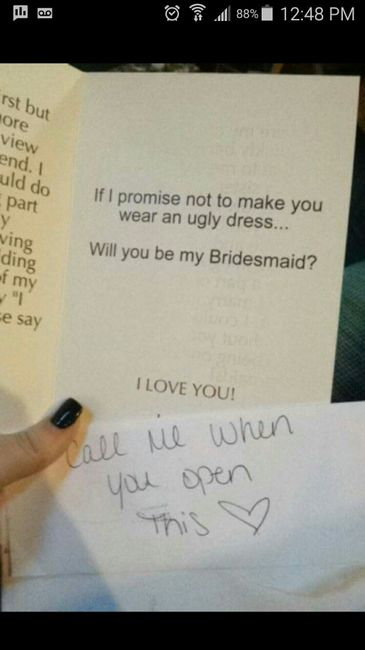 88% 12:48 PM
rst but
ore
view
end. I
uld do
part
y
ving
ding
f my
y "I
e say
If I promise not to make you
wear an ugly dress...
Will you be my Bridesmaid?
I LOVE YOU!
Call me when
you open
This ♡